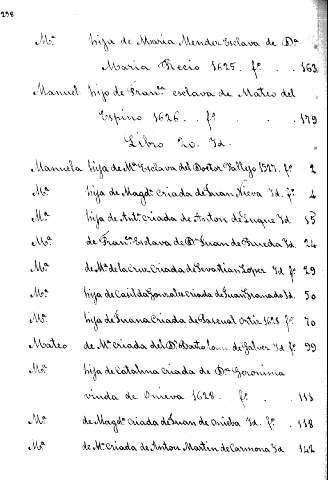 298
Mª hija de Maria Mendez Esclava de Dª
Maria Recio 1625. fº . 163
Manuel hijo de Franᶜᵃ esclava de Mateo del
Espino 1626. fº . 179
Libro 20. Id.
Manuela hija de Mª Esclava del Doctor Vallejo 1527. fº 2
Mª hija de Magdª criada de Juan Nieva Id. fº 4
Mª hija de Antª criada de Anton de Luque Id 15
Mª de Franᶜᵃ Esclava de Dⁿ Juan de Pineda Id 24
Mª de Mª de la Cruz Criada de Sevastian Lopez Id fº 29
Mª hija de Casilda Gonzalez criada de Juan Granado Id. 50
Mª hija de Juana Criada de Pascual Ortiz 1628 fº 70
Mateo de Mª criada del Dʳ Bartolomé de Galvez Id fº 99
Mª hija de Catalina criada de Dª Geronima
viuda de Onieva 1628. fº . 111
Mª de Magdª criada de Juan de Onieba Id. fº . 118
Mª de Mª Criada de Anton Martin de Carmona Id 142